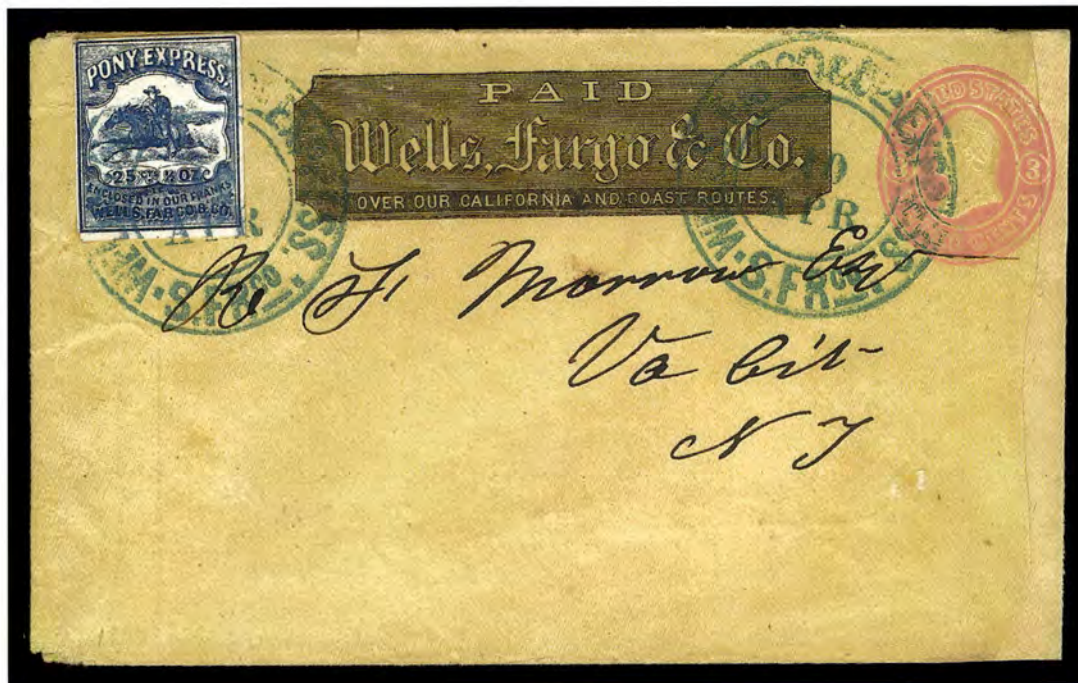 PONY EXPRESS,
25 CTS ½ OZ
ENCLOSED IN OUR FRANKS
WELLS, FARGO & CO.
PAID
Wells, Fargo & Co.
OVER OUR CALIFORNIA AND COAST ROUTES.
UNITED STATES
3
APR
S. FRCO
APR
S. FRCO
R F Morrow Esq
Va Cit
N T